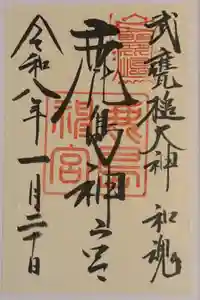 武甕槌大神 和魂
鹿島神宮
令和八年一月二十日
鹿島
神宮